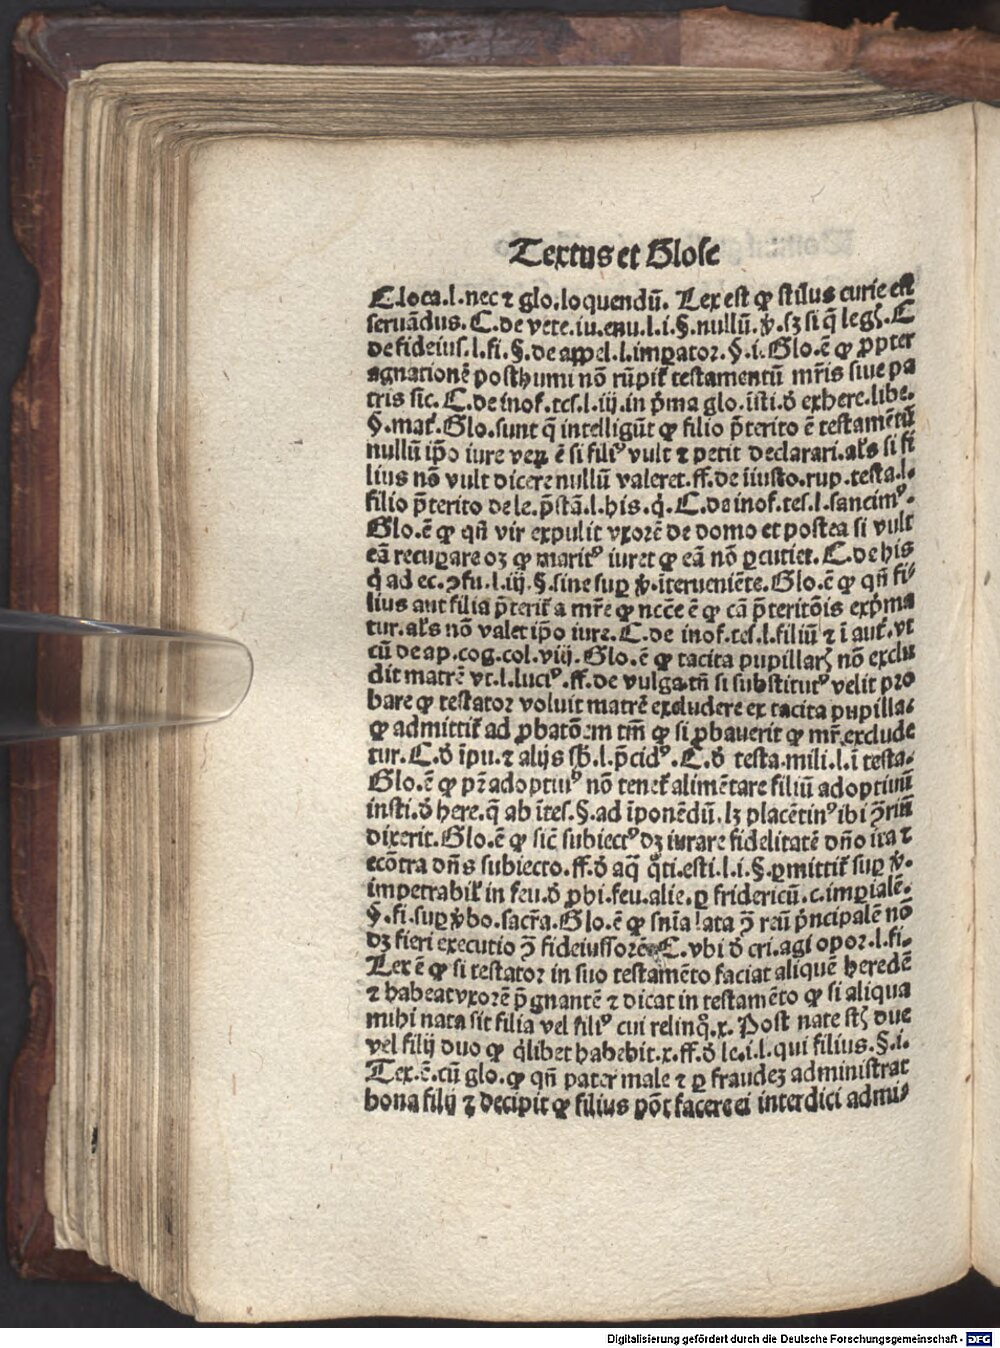 Textus et Glose
C.loca.l.nec ⁊ glo.loquendū. Lex est ꝙ stilus curie est
seruādus. C.de vete.iu.enu.l.i.§.nullū.ꝟ.sꝫ si q̄ leg. C
de fideius.l.fi.§.de appel.l.imꝑator.§.i.Glo.ē ꝙ ꝓpter
agnationē posthumi nō rūpit᷑ testamentū mr̄is siue pa
tris sic. C.de inof.tes.l.iij.in p̄ma glo.īsti.ꝺ̄ exhere.libe.
§.mat᷑.Glo.sunt q̄ intelligūt ꝙ filio p̄terito ē testamētū
nullū ip̄o iure veꝝ ē si filiꝰ vult ⁊ petit declarari.al̄s si fi
lius nō vult dicere nullū valeret.ff.de iiusto.rup.testa.l.
filio p̄terito de le.p̄stā.l.his.q̇. C.de inof.tes.l.sancimꝰ.
Glo.ē ꝙ qn̄ vir expulit vxorē de domo et postea si vult
eā recuꝑare oꝫ ꝙ maritꝰ iuret ꝙ eā nō ꝑcutiet. C.de his
q̇ ad ec.ꝯfu.l.iij.§.sine suꝑ ꝟ.īterueniēte.Glo.ē ꝙ qn̄ fi⸗
lius aut filia p̄terit᷑ a mr̄e ꝙ nc̄ce ē ꝙ cā p̄teritōis exp̄ma
tur.al̄s nō valet ip̄o iure. C.de inof.tes.l.filiū ⁊ ī aut᷑.vt
cū de ap.cog.col.viij.Glo.ē ꝙ tacita pupillarꝭ nō exclu
dit matrē vt.l.luciꝰ.ff.de vulga.tn̄ si substitutꝰ velit pro
bare ꝙ testator voluit matrē excludere ex tacita pupilla⸗
ꝙ admittit᷑ ad ꝓbatōem tm̄ ꝙ si ꝓbauerit ꝙ mr̄.exclude
tur. C.ꝺ̄ īpu.⁊ alijs sb̄.l.p̄cidꝰ. C.ꝺ̄ testa.mili.l.ī testa⸗
Glo.ē ꝙ pr̄ adoptiuꝰ nō tenet᷑ alimētare filiū adoptiuū
insti.ꝺ̄ here.q̄ ab ītes.§.ad īponēdū.lꝫ placētinꝰ ibi ꝯ̄riū
dixerit.Glo.ē ꝙ sic̄ subiectꝰ dꝫ iurare fidelitatē dn̄o ita ⁊
ecōtra dn̄s subiecto.ff.ꝺ̄ aq̄ q̊ti.esti.l.i.§.ꝑmittit᷑ suꝑ ꝟ.
impetrabil᷑ in feu.ꝺ̄ ꝓhi.feu.alie.ꝑ fridericū.c.imꝑialē.
§.fi.suꝑ ꝟbo.sacr̄a.Glo.ē ꝙ sn̄ia lata ꝯ̄ reū p̄ncipalē nō
dꝫ fieri executio ꝯ̄ fideiussorē. C.vbi ꝺ̄ cri.agi opor.l.fi.
Lex ē ꝙ si testator in suo testamēto faciat aliquē heredē
⁊ habeat vxorē p̄gnantē ⁊ dicat in testamēto ꝙ si aliqua
mihi nata sit filia vel filiꝰ cui relinq̊.x. Post nate st̄ due
vel filij duo ꝙ q̇libet habebit.x.ff.ꝺ̄ le.i.l.qui filius.§.i.
Tex.ē.cū glo.ꝙ qn̄ pater male ⁊ ꝑ fraudeꝫ administrat
bona filij ⁊ decipit ꝙ filius pōt facere ei interdici admi⸗
Digitalisierung gefördert durch die Deutsche Forschungsgemeinschaft - DFG